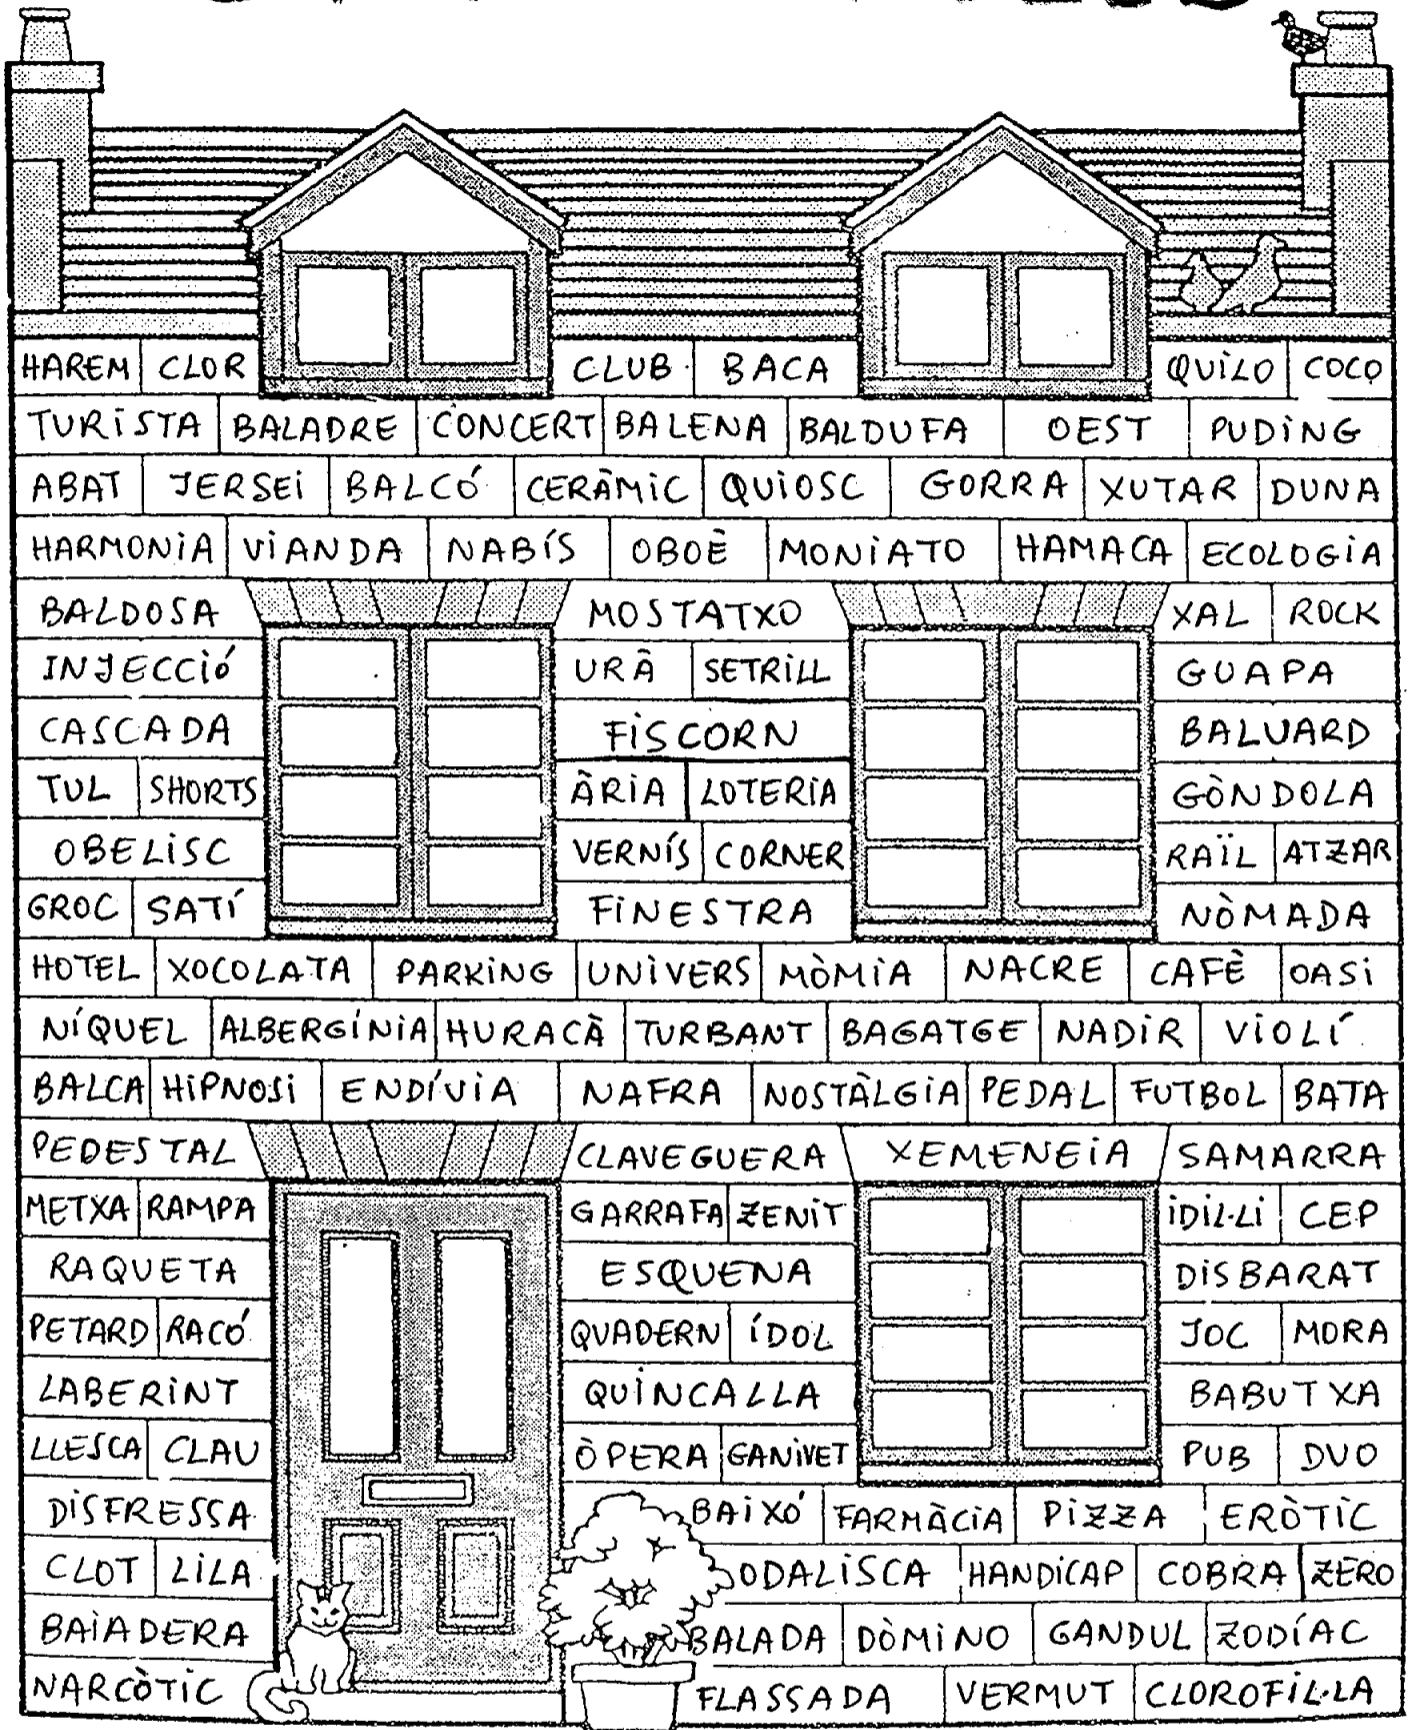 HAREM CLOR CLUB BACA QUILO COCO
TURISTA BALADRE CONCERT BALENA BALDUFA OEST PUDING
ABAT JERSEI BALCÓ CERÀMIC QUIOSC GORRA XUTAR DUNA
HARMONIA VIANDA NABÍS OBOÈ MONIATO HAMACA ECOLOGIA
BALDOSA MOSTATXO XAL ROCK
INJECCIÓ URÀ SETRILL GUAPA
CASCADA FISCORN BALUARD
TUL SHORTS ÀRIA LOTERIA GÒNDOLA
OBELISC VERNÍS CORNER RAÏL ATZAR
GROC SATÍ FINESTRA NÒMADA
HOTEL XOCOLATA PARKING UNIVERS MÒMIA NACRE CAFÈ OASI
NÍQUEL ALBERGÍNIA HURACÀ TURBANT BAGATGE NADIR VIOLÍ
BALCA HIPNOSI ENDÍVIA NAFRA NOSTÀLGIA PEDAL FUTBOL BATA
PEDESTAL CLAVEGUERA XEMENEIA SAMARRA
METXA RAMPA GARRAFA ZENIT IDIL·LI CEP
RAQUETA ESQUENA DISBARAT
PETARD RACÓ QUADERN ÍDOL JOC MORA
LABERINT QUINCALLA BABUTXA
LLESCA CLAU ÒPERA GANIVET PUB DUO
DISFRESSA BAIXÓ FARMÀCIA PIZZA ERÒTIC
CLOT LILA ODALISCA HANDICAP COBRA ZERO
BAIADERA BALADA DÒMINO GANDUL ZODÍAC
NARCÒTIC FLASSADA VERMUT CLOROFIL·LA